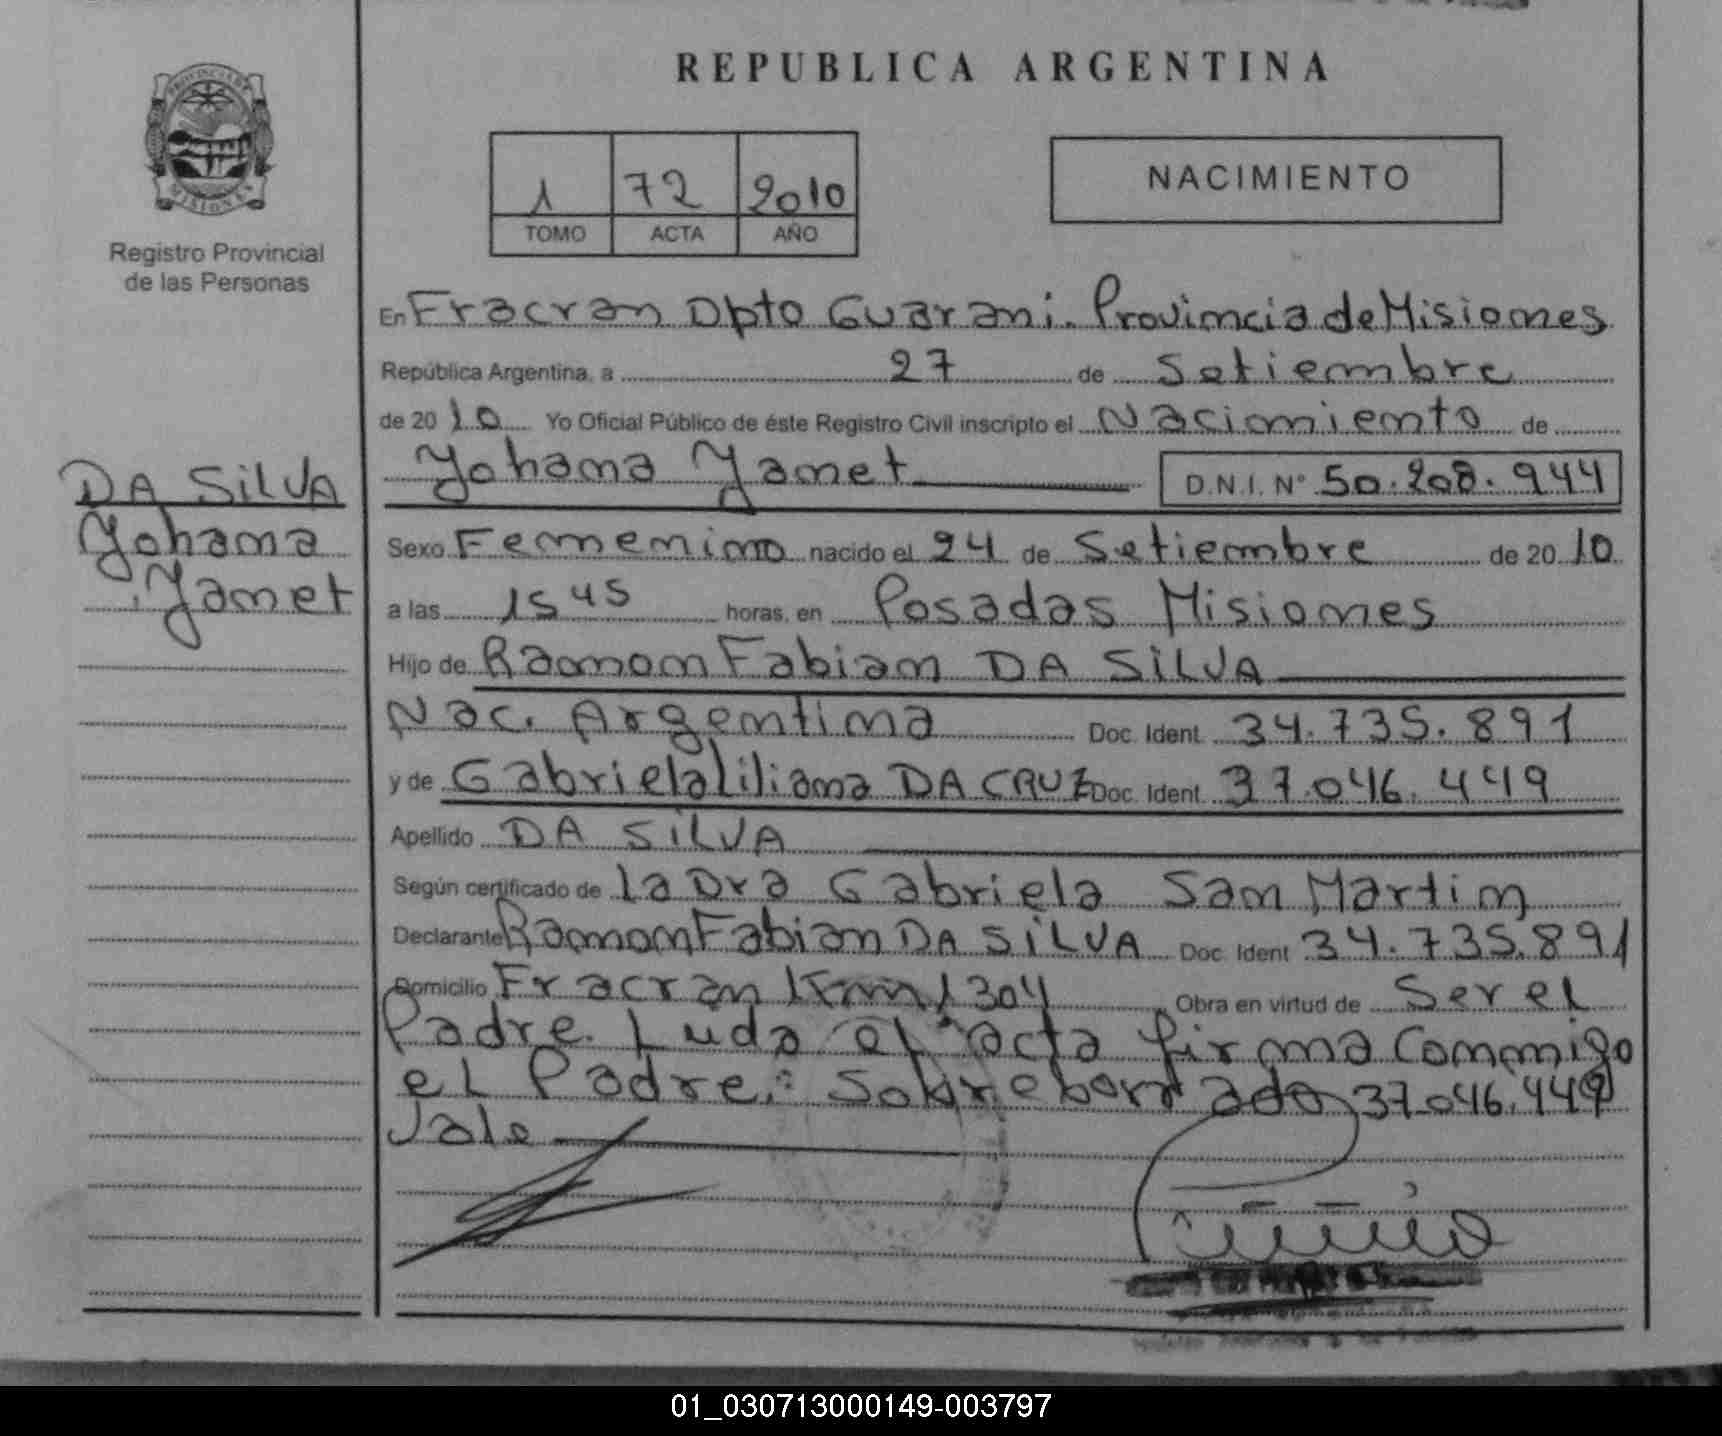 REPUBLICA ARGENTINA
PROVINCIA DE MISIONES
Registro Provincial
de las Personas
1 72 2010
TOMO ACTA AÑO
NACIMIENTO
En Fracran Dpto Guarani. Provincia de Misiones
República Argentina, a 27 de Setiembre
de 2010 Yo Oficial Público de éste Registro Civil inscripto el Nacimiento de
Yohana Yanet D.N.I. N° 50.208.944
DA SILVA
Yohana
Yanet
Sexo Femenino nacido el 24 de Setiembre de 2010
a las 15 45 horas, en Posadas Misiones
Hijo de Ramon Fabian DA SILVA
Nac. Argentina Doc. Ident. 34.735.891
y de Gabriela liliana DA CRUZ Doc. Ident. 37.046.449
Apellido DA SILVA
Según certificado de la Dra Gabriela San Martin
Declarante Ramon Fabian DA SILVA Doc. Ident 34.735.891
Domicilio Fracran Km 1304 Obra en virtud de Ser el
Padre. Luda el acta firma Conmigo
el Padre: Sobreborrado 37.046.449
Vale
01_030713000149-003797